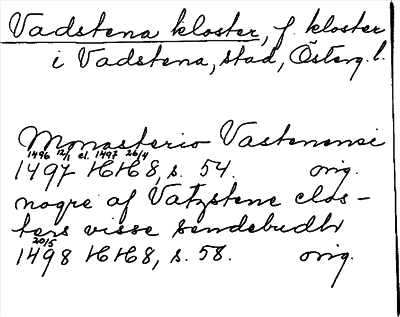 Vadstena kloster, f. kloster
i Vadstena, stad, Österg. l.
Monasterio Vastenensi
1496 12/1 el. 1497 26/4
1497 HH 8, s. 54. orig.
nogre af Vatzstene clos-
ters visse sendebudh
20/5
1498 HH 8, s. 58. orig.